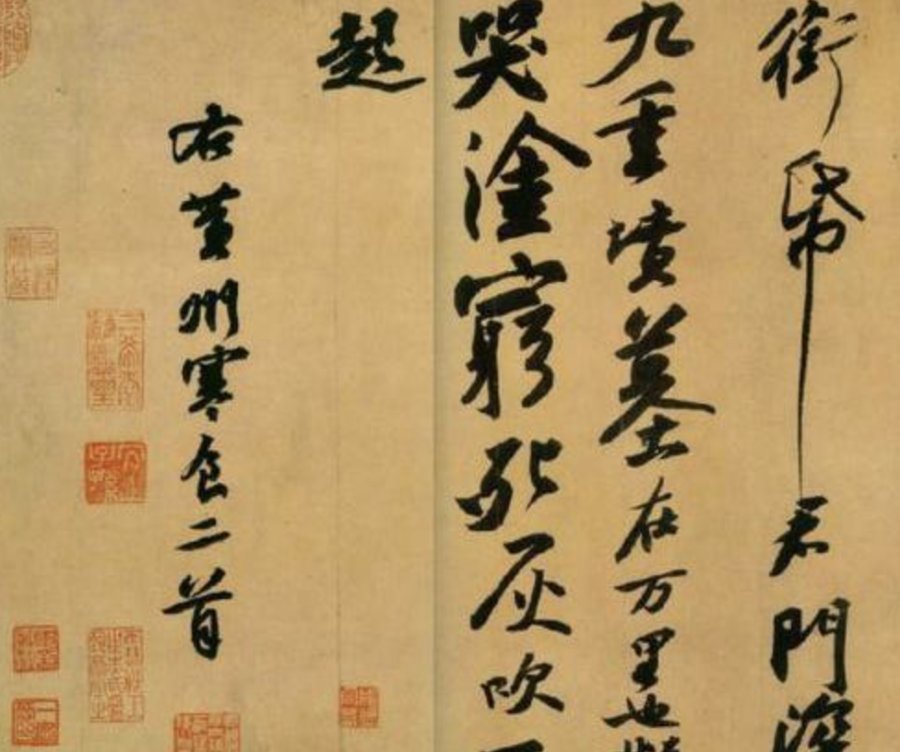 銜帋君門深
九重墳墓在万里也
哭塗窮死灰吹
起
右黄州寒食二首